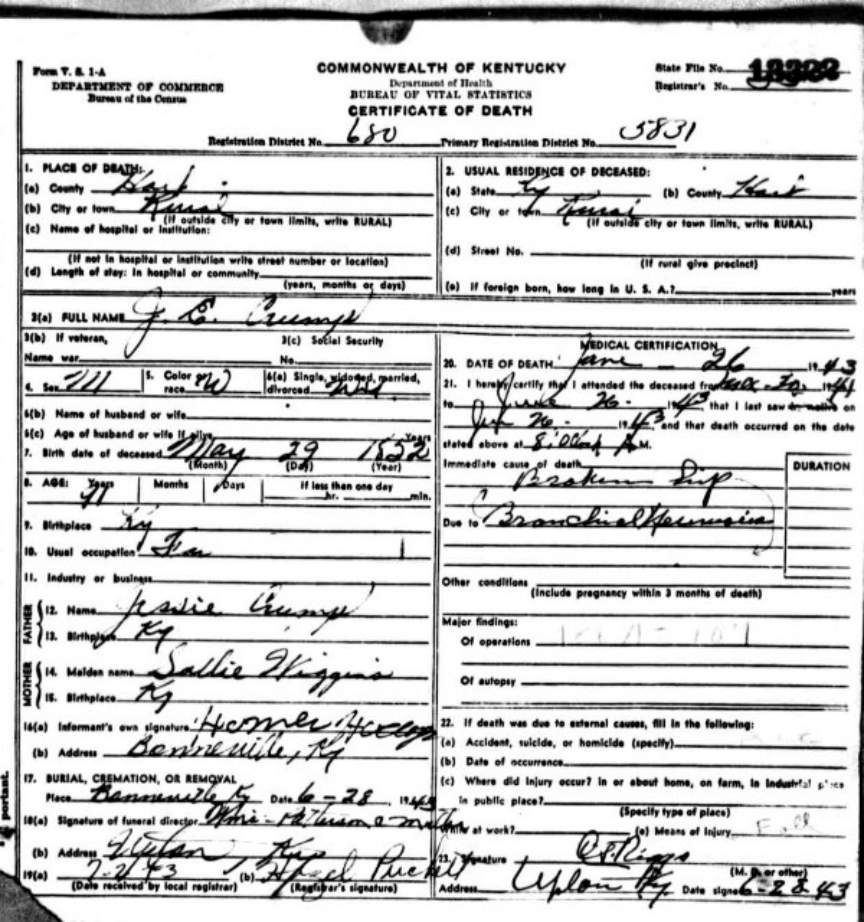 Form V. S. 1-A
DEPARTMENT OF COMMERCE
Bureau of the Census
COMMONWEALTH OF KENTUCKY
Department of Health
BUREAU OF VITAL STATISTICS
CERTIFICATE OF DEATH
State File No. 13322
Registrar's No.
Registration District No. 680 Primary Registration District No. 5831
1. PLACE OF DEATH:
(a) County Hart
(b) City or town Rural
(If outside city or town limits, write RURAL)
(c) Name of hospital or institution:
(If not in hospital or institution write street number or location)
(d) Length of stay: In hospital or community
(years, months or days)
2. USUAL RESIDENCE OF DECEASED:
(a) State Ky (b) County Hart
(c) City or town Rural
(If outside city or town limits, write RURAL)
(d) Street No.
(If rural give precinct)
(e) If foreign born, how long in U. S. A.? years
3(a) FULL NAME J. E. Crump
3(b) If veteran,
Name war
3(c) Social Security
No.
4. Sex M 5. Color race W 6(a) Single, widowed, married, divorced Wid
6(b) Name of husband or wife
6(c) Age of husband or wife if alive Years
7. Birth date of deceased May 29 1852
(Month) (Day) (Year)
8. AGE: Years 91 Months Days If less than one day
hr. min.
9. Birthplace Ky
10. Usual occupation
11. Industry or business
FATHER
12. Name Jessie Crump
13. Birthplace Ky
MOTHER
14. Maiden name Sallie Wiggins
15. Birthplace Ky
16(a) Informant's own signature Homer
(b) Address Bonnieville, Ky
17. BURIAL, CREMATION, OR REMOVAL
Place Bonnieville Ky Date 6-28, 194
18(a) Signature of funeral director
(b) Address Upton Ky
19(a) 7-2-43 (b) Hazel Puckett
(Date received by local registrar) (Registrar's signature)
MEDICAL CERTIFICATION
20. DATE OF DEATH June 26 1943
21. I hereby certify that I attended the deceased from 1941
to June 26 - 1943 that I last saw alive on
Jun 26 - 1943 and that death occurred on the date
stated above at 8:00 M.
Immediate cause of death
Broken hip
DURATION
Due to Bronchial Pneumonia
Other conditions
(Include pregnancy within 3 months of death)
Major findings:
Of operations
Of autopsy
22. If death was due to external causes, fill in the following:
(a) Accident, suicide, or homicide (specify)
(b) Date of occurrence
(c) Where did injury occur? in or about home, on farm, in industrial place
in public place?
(Specify type of place)
While at work? (e) Means of injury Fall
23. Signature Riggs
(M. D. or other)
Address Upton Ky. Date signed 6-28-43
portant.